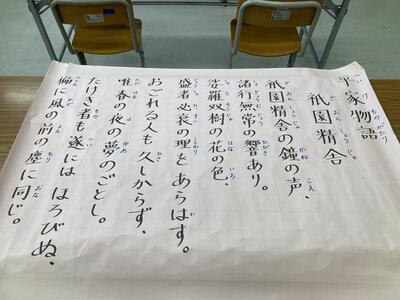 平家物語
祇園精舎
祇園精舎の鐘の声、
諸行無常の響あり。
娑羅双樹の花の色、
盛者必衰の理をあらはす。
おごれる人も久しからず、
唯春の夜の夢のごとし。
たけき者も遂にはほろびぬ、
偏に風の前の塵に同じ。